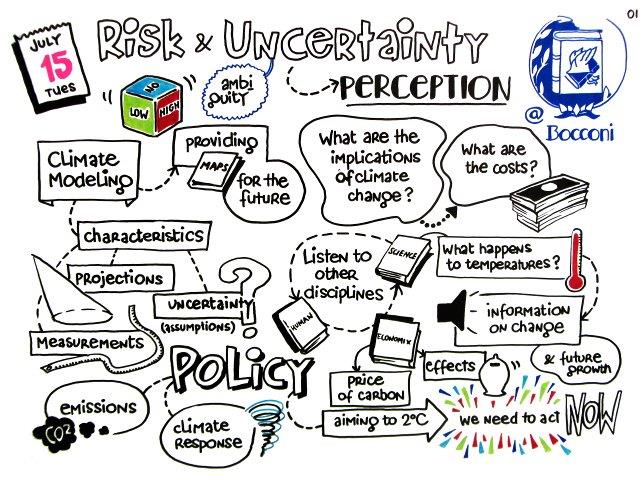 01
JULY
15
TUES
Risk & Uncertainty
PERCEPTION
NO
LOW
HIGH
ambi
guity
@
Bocconi
Climate
Modeling
providing
MAPS
for the
future
What are the
implications
of climate
change?
What are
the costs?
characteristics
Projections
Measurements
uncertainty
(assumptions)
?
Listen to
other
disciplines
SCIENCE
HUMAN
ECONOMIX
What happens
to temperatures?
information
on change
effects
& future
growth
Price
of carbon
POLICY
emissions
CO2
climate
RESPONSE
aiming to 2°C
we need to act
NOW